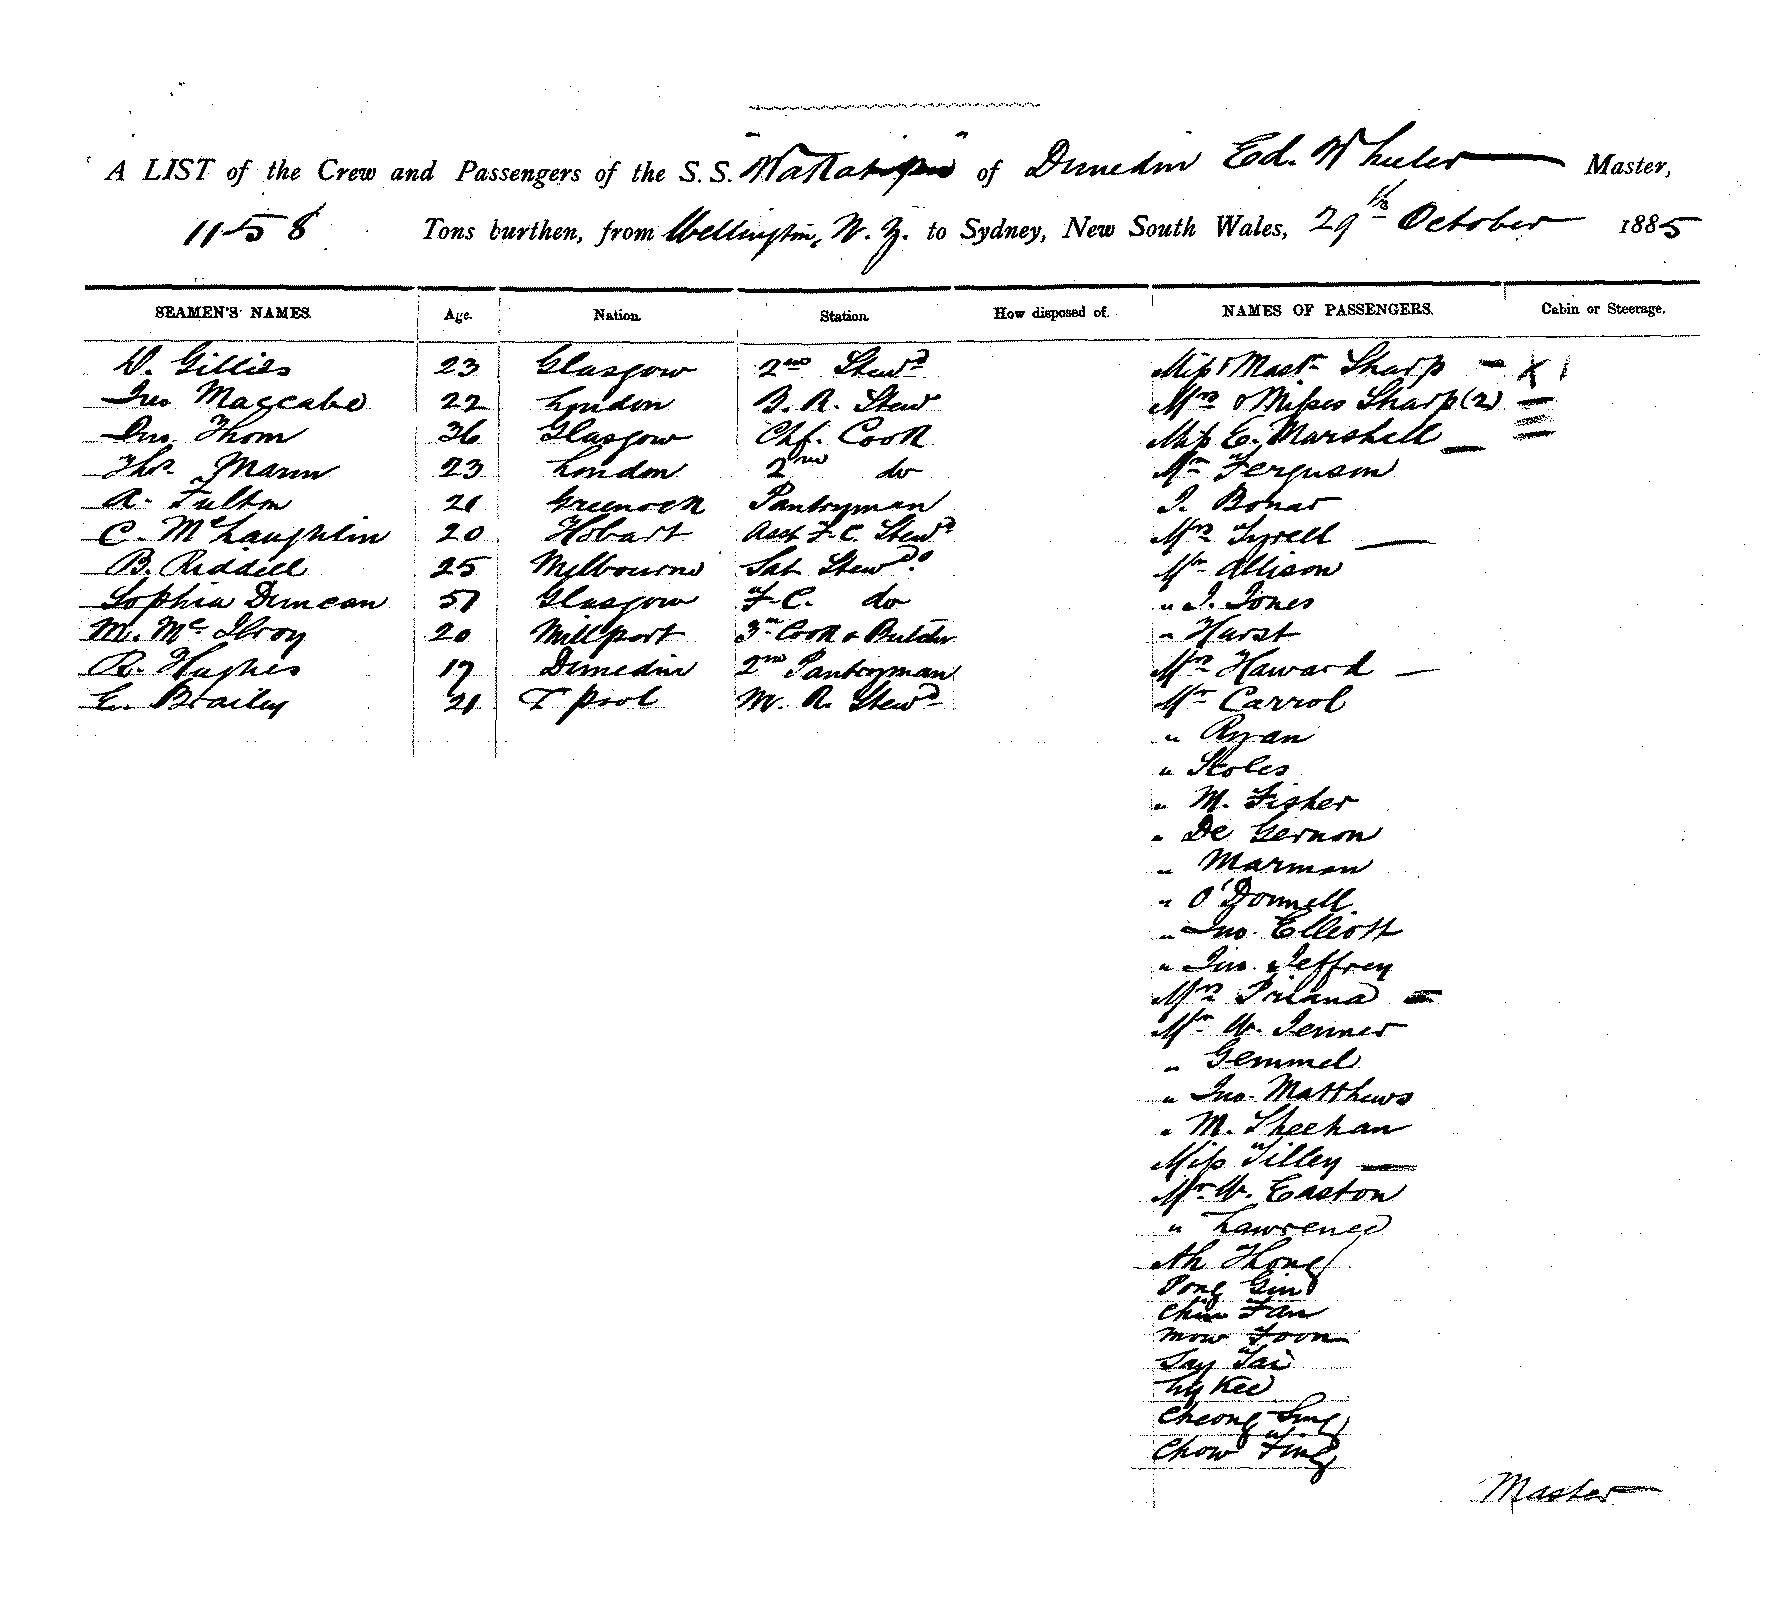 A LIST of the Crew and Passengers of the S.S. "Wakatipu" of Dunedin Ed. Wheeler Master,
1158 Tons burthen, from Wellington, N.Z. to Sydney, New South Wales, 29th October 1885
SEAMEN'S NAMES. Age. Nation. Station. How disposed of. NAMES OF PASSENGERS. Cabin or Steerage.
D. Gillies 23 Glasgow 2nd Stewd Miss & Mastr Sharp — X 1
Jno Maccabe 22 London B. R. Stew Mrs & Misses Sharp (2) —
Jno Thom 36 Glasgow Chf. Cook Miss E. Marshell —
Thos Mann 23 London 2nd do Mr Ferguson
A. Fulton 21 Greenock Pantryman J. Bonar
C. McLaughlin 20 Hobart Asst F. C. Stewd Mrs Tyrell —
B. Riddell 25 Melbourne Sal Stewds Mr Allison
Sophia Duncan 51 Glasgow F. C. do " J. Jones
M. McIlroy 20 Millport 3rd Cook & Butcher " Hurst
R. Hughes 17 Dunedin 2nd Pantryman Mrs Haward —
E. Brailey 21 L'pool M. R. Stewd Mr Carrol
" Ryan
" Stoles
" M. Fisher
" De Gernon
" Marman
" O'Donnell
" Jno. Elliott
" Jno. Jeffrey
Mrs —
Mr W. Jenner
" Gemmel
" Jno. Matthews
" M. Sheehan
Miss Tilley —
Mr W. Easton
" Lawrence
Ah Thong
Pong Gin
Chin Fan
Mow Foon
Say Tai
Ly Kee
Cheong Sing
Chow Ting
Master